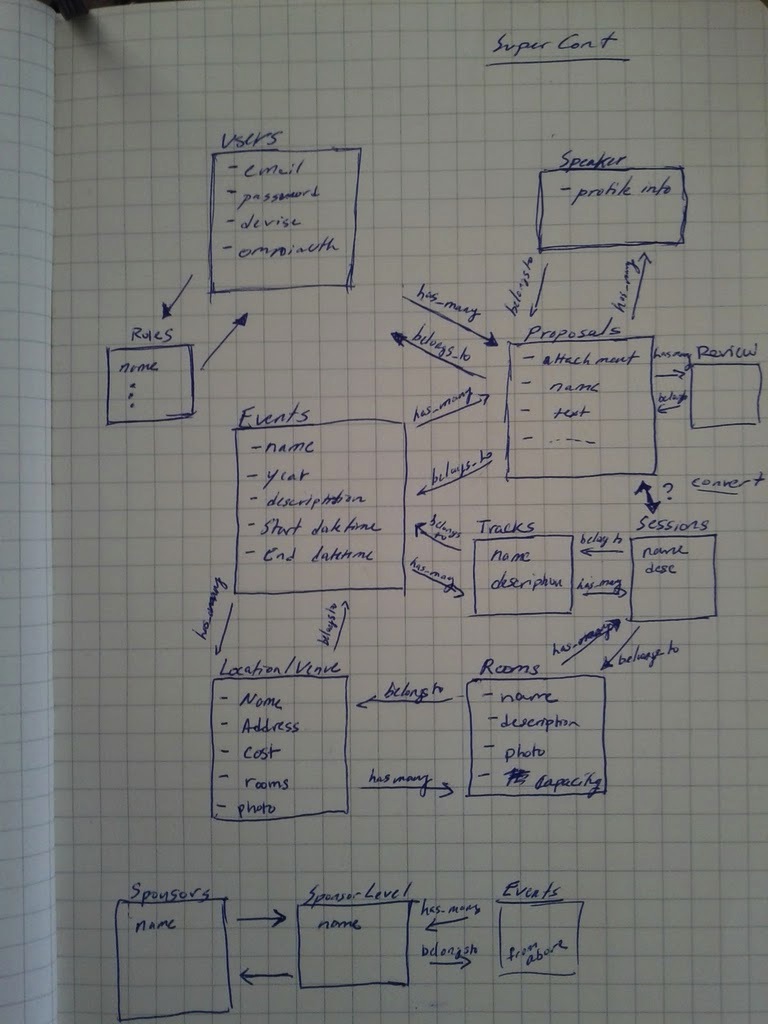 Super Conf
Users
- email
- password
- devise
- omniauth
Speaker
- profile info
belongs to
has_many
Roles
name
has_many
belongs_to
Proposals
- attachment
- name
- text
- -----
has many
belongs
Review
Events
- name
- year
- description
- Start datetime
- End datetime
has_many
belongs_to
? convert
belongs to
has_many
Tracks
name
description
belong to
has_many
Sessions
name
desc
has_many
belongs to
has_many
belongs_to
Location/Venue
- Name
- Address
- Cost
- rooms
- photo
belongs to
has many
Rooms
- name
- description
- photo
- Capacity
Sponsors
name
Sponsor Level
name
has_many
belongs to
Events
from above